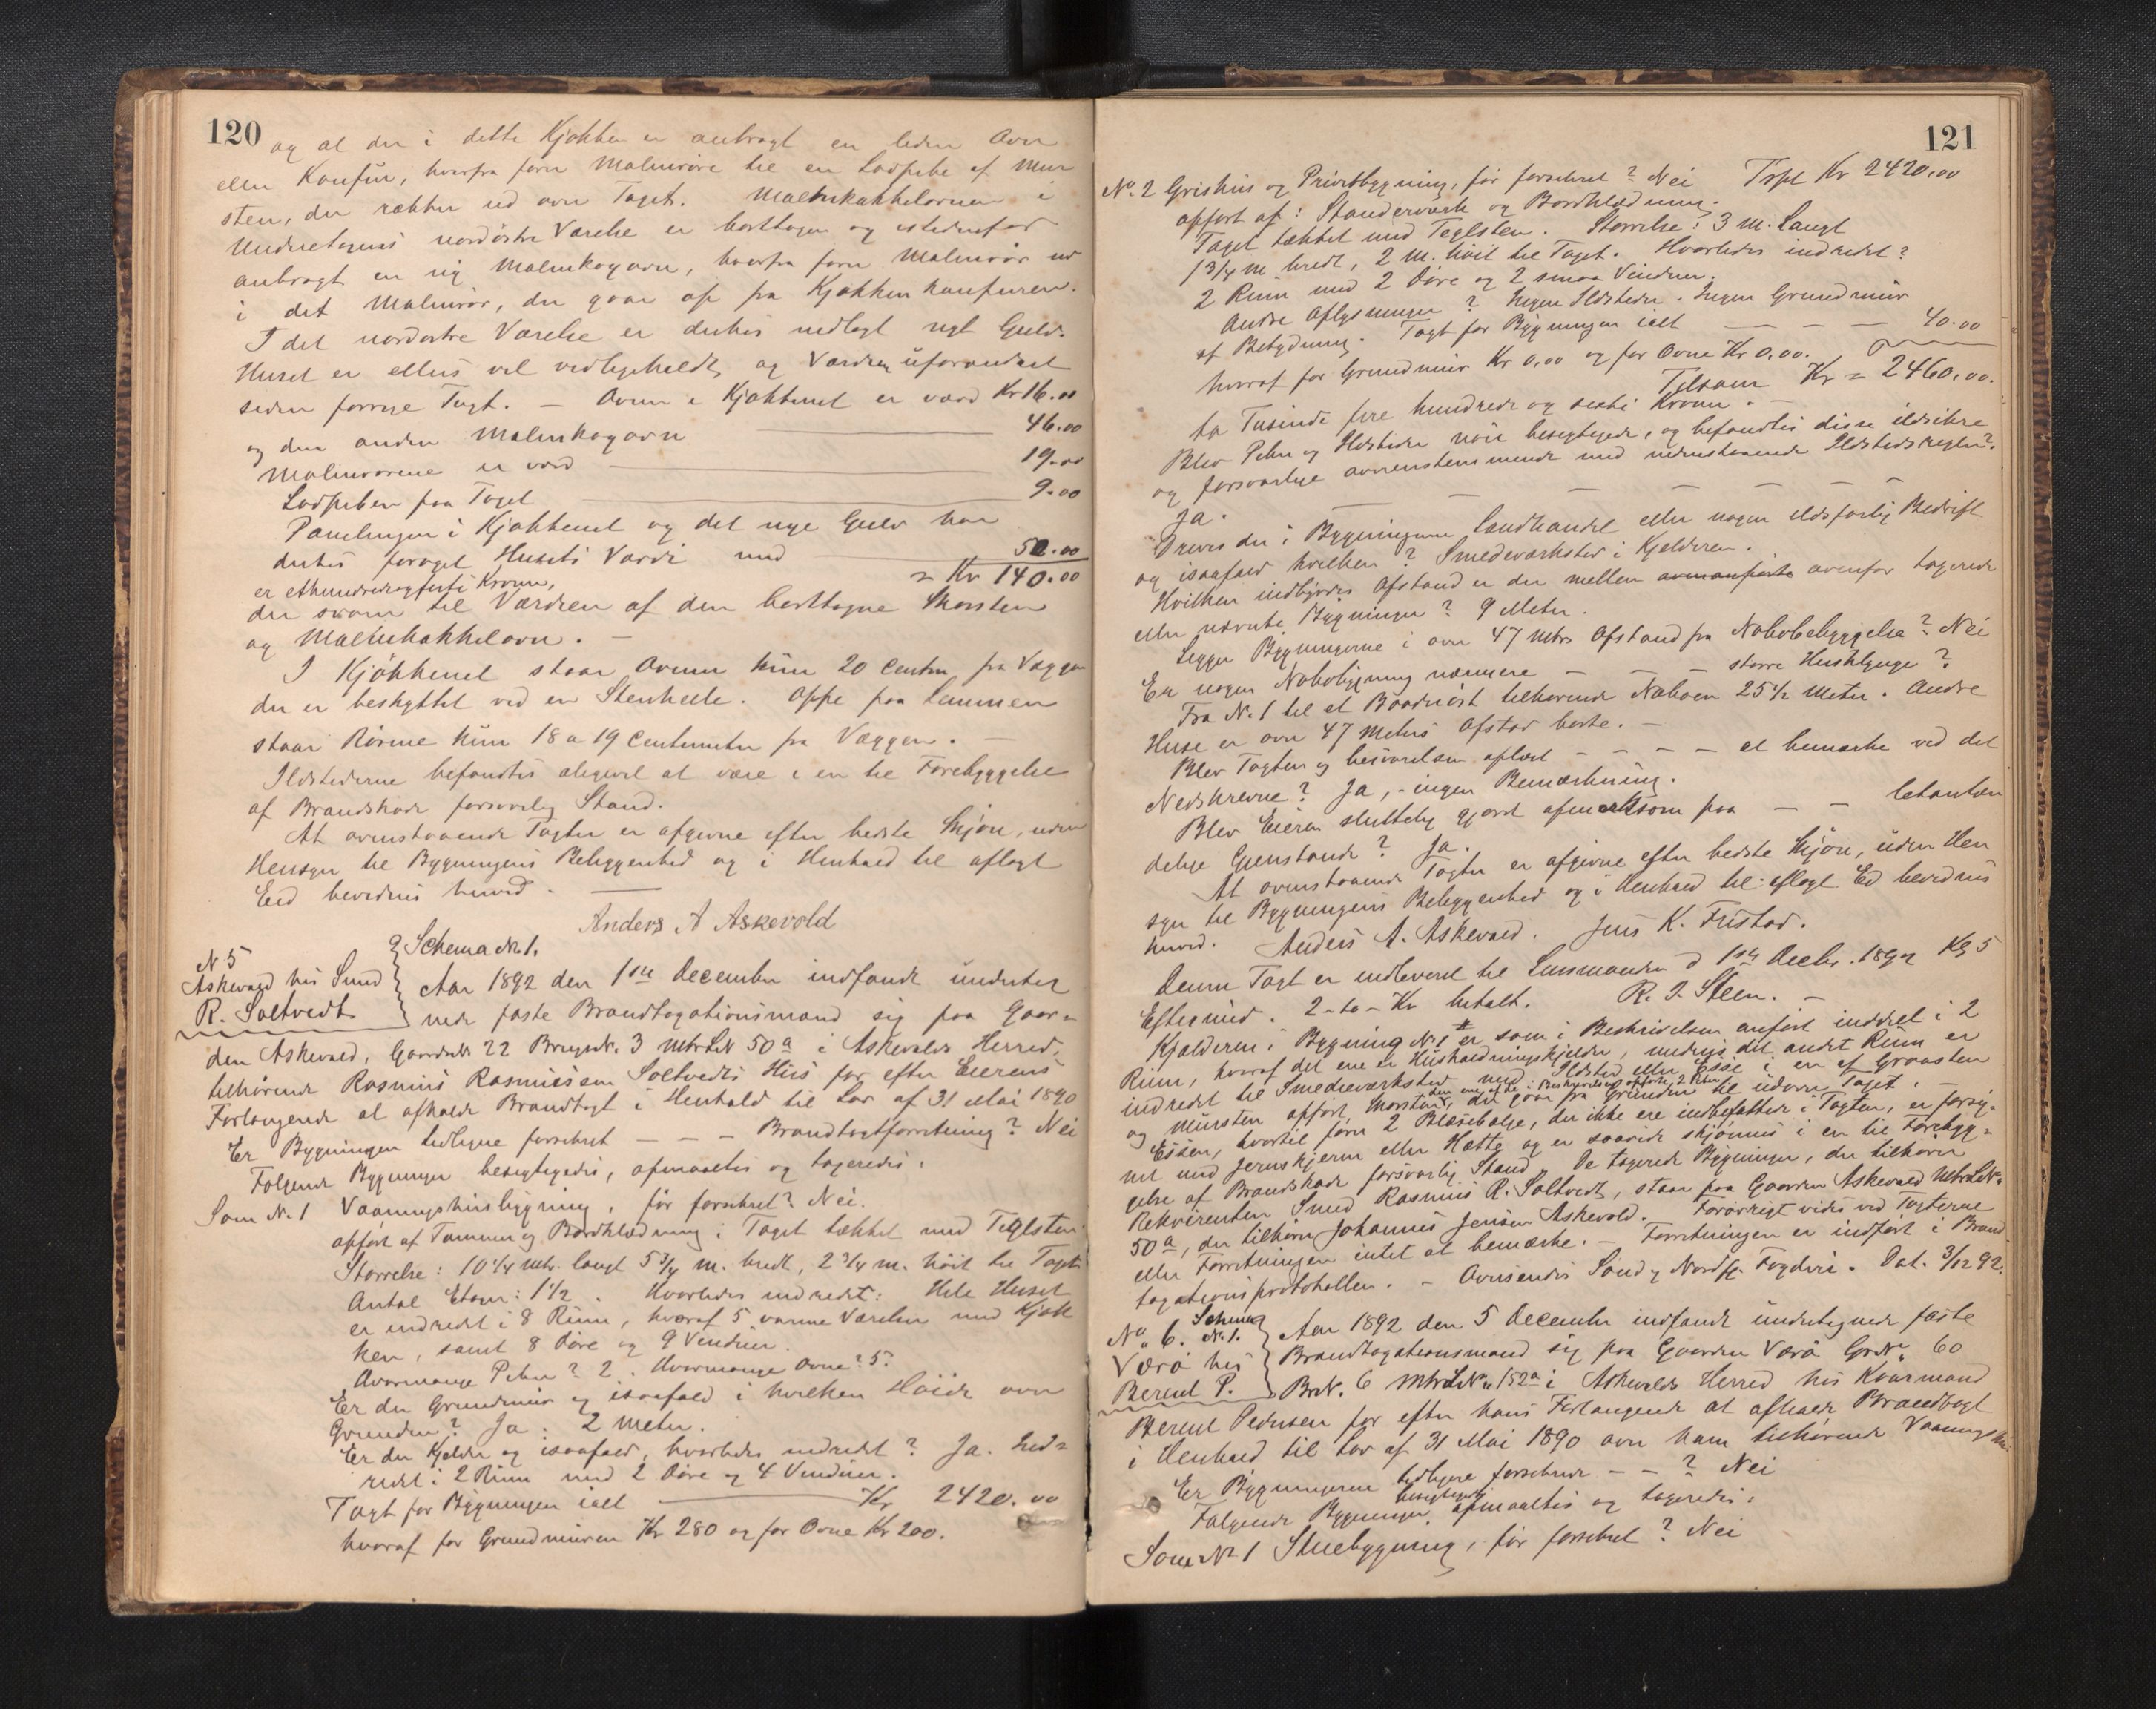 120
og at der i dette Kjøkken er anbragt en liden Ovn
eller Komfür, hvorfra fører Malmrøre til en Lodpibe af Mur
sten, der rækker ud over Taget. Malmkakkelovnen i
Underetagens nordøstre Værelse er borttagen og istedenfor
anbragt en ny Malmkogovn, hvorfra fører Malmrør ud
i det Malmrør, der gaar op fra Kjøkkenkomfuren.
I det nordøstre Værelse er derhos nedlagt nyt Gulv.
Huset er ellers vel vedligeholdt, og Værdien uforandret
siden forrige Taxt. — Ovnen i Kjøkkenet er værd Kr 16.00
og den anden Malmkogovn — 46.00
Malmrørene er værd — 19.00
Lodpiben paa Taget — 9.00
Panelingen i Kjøkkenet og det nye Gulv har
derhos forøget Husets Værdi med — 50.00
er ethundredeogførti Kroner, = Kr 140.00
der svarer til Værdien af den borttagne Skorsten
og Malmkakkelovn. —
I Kjøkkenet staar Ovnen kün 20 Centm fra Væggen
der er beskyttet ved en Stenhelle. Oppe paa Lemmen
staar Rørene kün 18 a 19 Centimeter fra Væggen. —
Ildstederne befandtes aligevel at være i en til Forebyggelse
af Brandskade forsvarlig Stand.
At ovenstaaende Taxter er afgivne efter bedste Skjøn, uden
Hensyn til Bygningens Beliggenhed og i Henhold til aflagt
Eed bevidnes herved. —
Anders A Askevold
N 5 Schema No 1.
Askevold hos Smed Aar 1892 den 1ste December indfandt underteg
R. Soltvedt nede faste Brandtaxationsmænd sig paa Gaar-
den Askevold, GaardsNr. 22 BrugsNr. 3 MtrLN 50a i Askevolds Herred,
tilhørende Rasmus Rasmussen Soltvedts Hus for efter Eierens
Forlangende at afholde Brandtaxt i Henhold til Lov af 31 Mai 1890
Er Bygningen tidligere forsikret — — — Brandtaxtforretning? Nei
Følgende Bygninger besigtigedes, opmaaltes og taxeredes:
Som No 1 Vaaningshusbygning, før forsikret? Nei.
opført af Tømmer og Bordklædning; Taget tækket med Teglsten
Størrelse: 10 1/4 mtr. langt 5 3/4 m. bredt, 2 3/4 m. høit til Taget
Antal Etager: 1 1/2. Hvorledes indredet: Hele Huset
er indredet i 8 Rum, hvoraf 5 varme Værelser med Kjøk
ken, samt 8 Døre og 9 Vinduer.
Hvormange Peber? 2. Hvormange Ovne? 5.
Er der Grundmur og isaafald i hvilken Høide over
Grunden? Ja. 2 Meter.
Er der Kjelder og isaafald, hvorledes indredet? Ja. Ind-
redet i 2 Rum med 2 Døre og 4 Vinduer.
Taxt for Bygningen ialt — Kr 2420.00
hvoraf for Grundmuren Kr 280 og for Ovne Kr 200.
121
No. 2 Grishus og Privetbygning, før forsikret? Nei Trpt Kr 2420.00
opført af: Standerværk og Bordklædning.
Taget tækket med Teglsten. Størrelse: 3 m. Langt
1 3/4 m bredt, 2 m. høit til Taget. Hvorledes indredet?
2 Rum med 2 Døre og 2 smaa Vinduer.
Andre Oplysninger? Ingen Ildsteder. Ingen Grundmür
af Betydning. Taxt for Bygningen ialt — — — 40.00
hvoraf for Grundmür Kr 0,00 og for Ovne Kr 0,00.
Tilsam Kr = 2460,00.
to Tusinde fire hundrede og sexti Kroner. —
Blev Peber og Ildsteder nøie besigtigede, og befandtes disse ildsikre
og forsvarlige overensstemmende med nedenstaaende Ildstedsregler?
Ja. — — — — — —
Drives der i Bygningerne Landhandel eller nogen ildsfarlig Bedrift
og isaafald hvilken? Smedeværksted i Kjelderen.
Hvilken indbyrdes Afstand er der mellem ovenanførte ovenfor taxerede
eller nævnte Bygninger? 9 Meter.
Ligger Bygningerne i over 47 Mtrs Afstand fra Nabobebyggelse? Nei
Er nogen Nabobygning nærmere — — — større Husklynge?
Fra No. 1 til et Baadnøst tilhørende Naboen 25 1/2 Meter. Andre
Huse er over 47 Meters Afstad borte. —
Blev Taxten og besvarelsen oplæst — — — — at bemærke ved det
Nedskrevne? Ja, - ingen Bemærkning.
Blev Eieren sluttelig gjort opmærksom paa — — letantæn
delige Gjenstande? Ja.
At ovenstaaende Taxter er afgivne efter bedste Skjøn, uden Hen
syn til Bygningens Beliggenhed og i Henhold til aflagt Ed bevidnes
herved. Anders A. Askevold. Jens K. Fristad.
Denne Taxt er indleveret til Lensmanden d 1ste Decbr. 1892 Kl 5
Eftermid. 2 - to - Kr betalt. R. J. Steen. —
Kjælderen i Bygning No 1 er som i Beskrivelsen anført inddelt i 2
Rum, hvoraf det ene er Husholdningskjelder, medens det andet Rum er
indredet til Smedeværksted med Ildsted eller Esse i en af Graasten
og Mürsten opført Skorsten, den ene af de i Beskrivelsen opførte 2 Peber, der gaar fra Grunden til udover Taget. —
Essen, hvortil hører 2 Blæsebælge, der ikke ere indbefattede i Taxten, er forsy-
net med Jernskjerm eller Hætte og er saavidt skjønnes i en til Forebyg-
gelse af Brandskade forsvarlig Stand. De taxerede Bygninger, der tilhører
Rekvirenten Smed Rasmus R. Soltvedt, staar paa Gaarden Askevold MtrLNr
50a, der tilhører Johannes Jensen Askevold. Forøvrigt vides ved Taxterne
eller Forretningen intet at bemærke. — Forretningen er indført i Brand
taxationsprotokollen. — Oversendes Sond og Nordfj. Fogderi. Dat. 3/12 92.
No. 6. Schema No 1. Aar 1892 den 5 December indfandt undertegnede faste
Værø hos Brandtaxationsmænd sig paa Gaarden Værø GrNr. 60
Berent P. BrN. 6 MtrLNr. 152a i Askevolds Herred hos Kvarmand
Berent Pedersen for efter hans Forlangende at afholde Brandtaxt
i Henhold til Lov af 31 Mai 1890 over ham tilhørende Vaaningshu
Er Bygningerne tidligere forsikrede — — ? Nei
Følgende Bygninger besigtigedes, opmaaltes og taxeredes:
Som No 1 Stuebygning, før forsikret? Nei